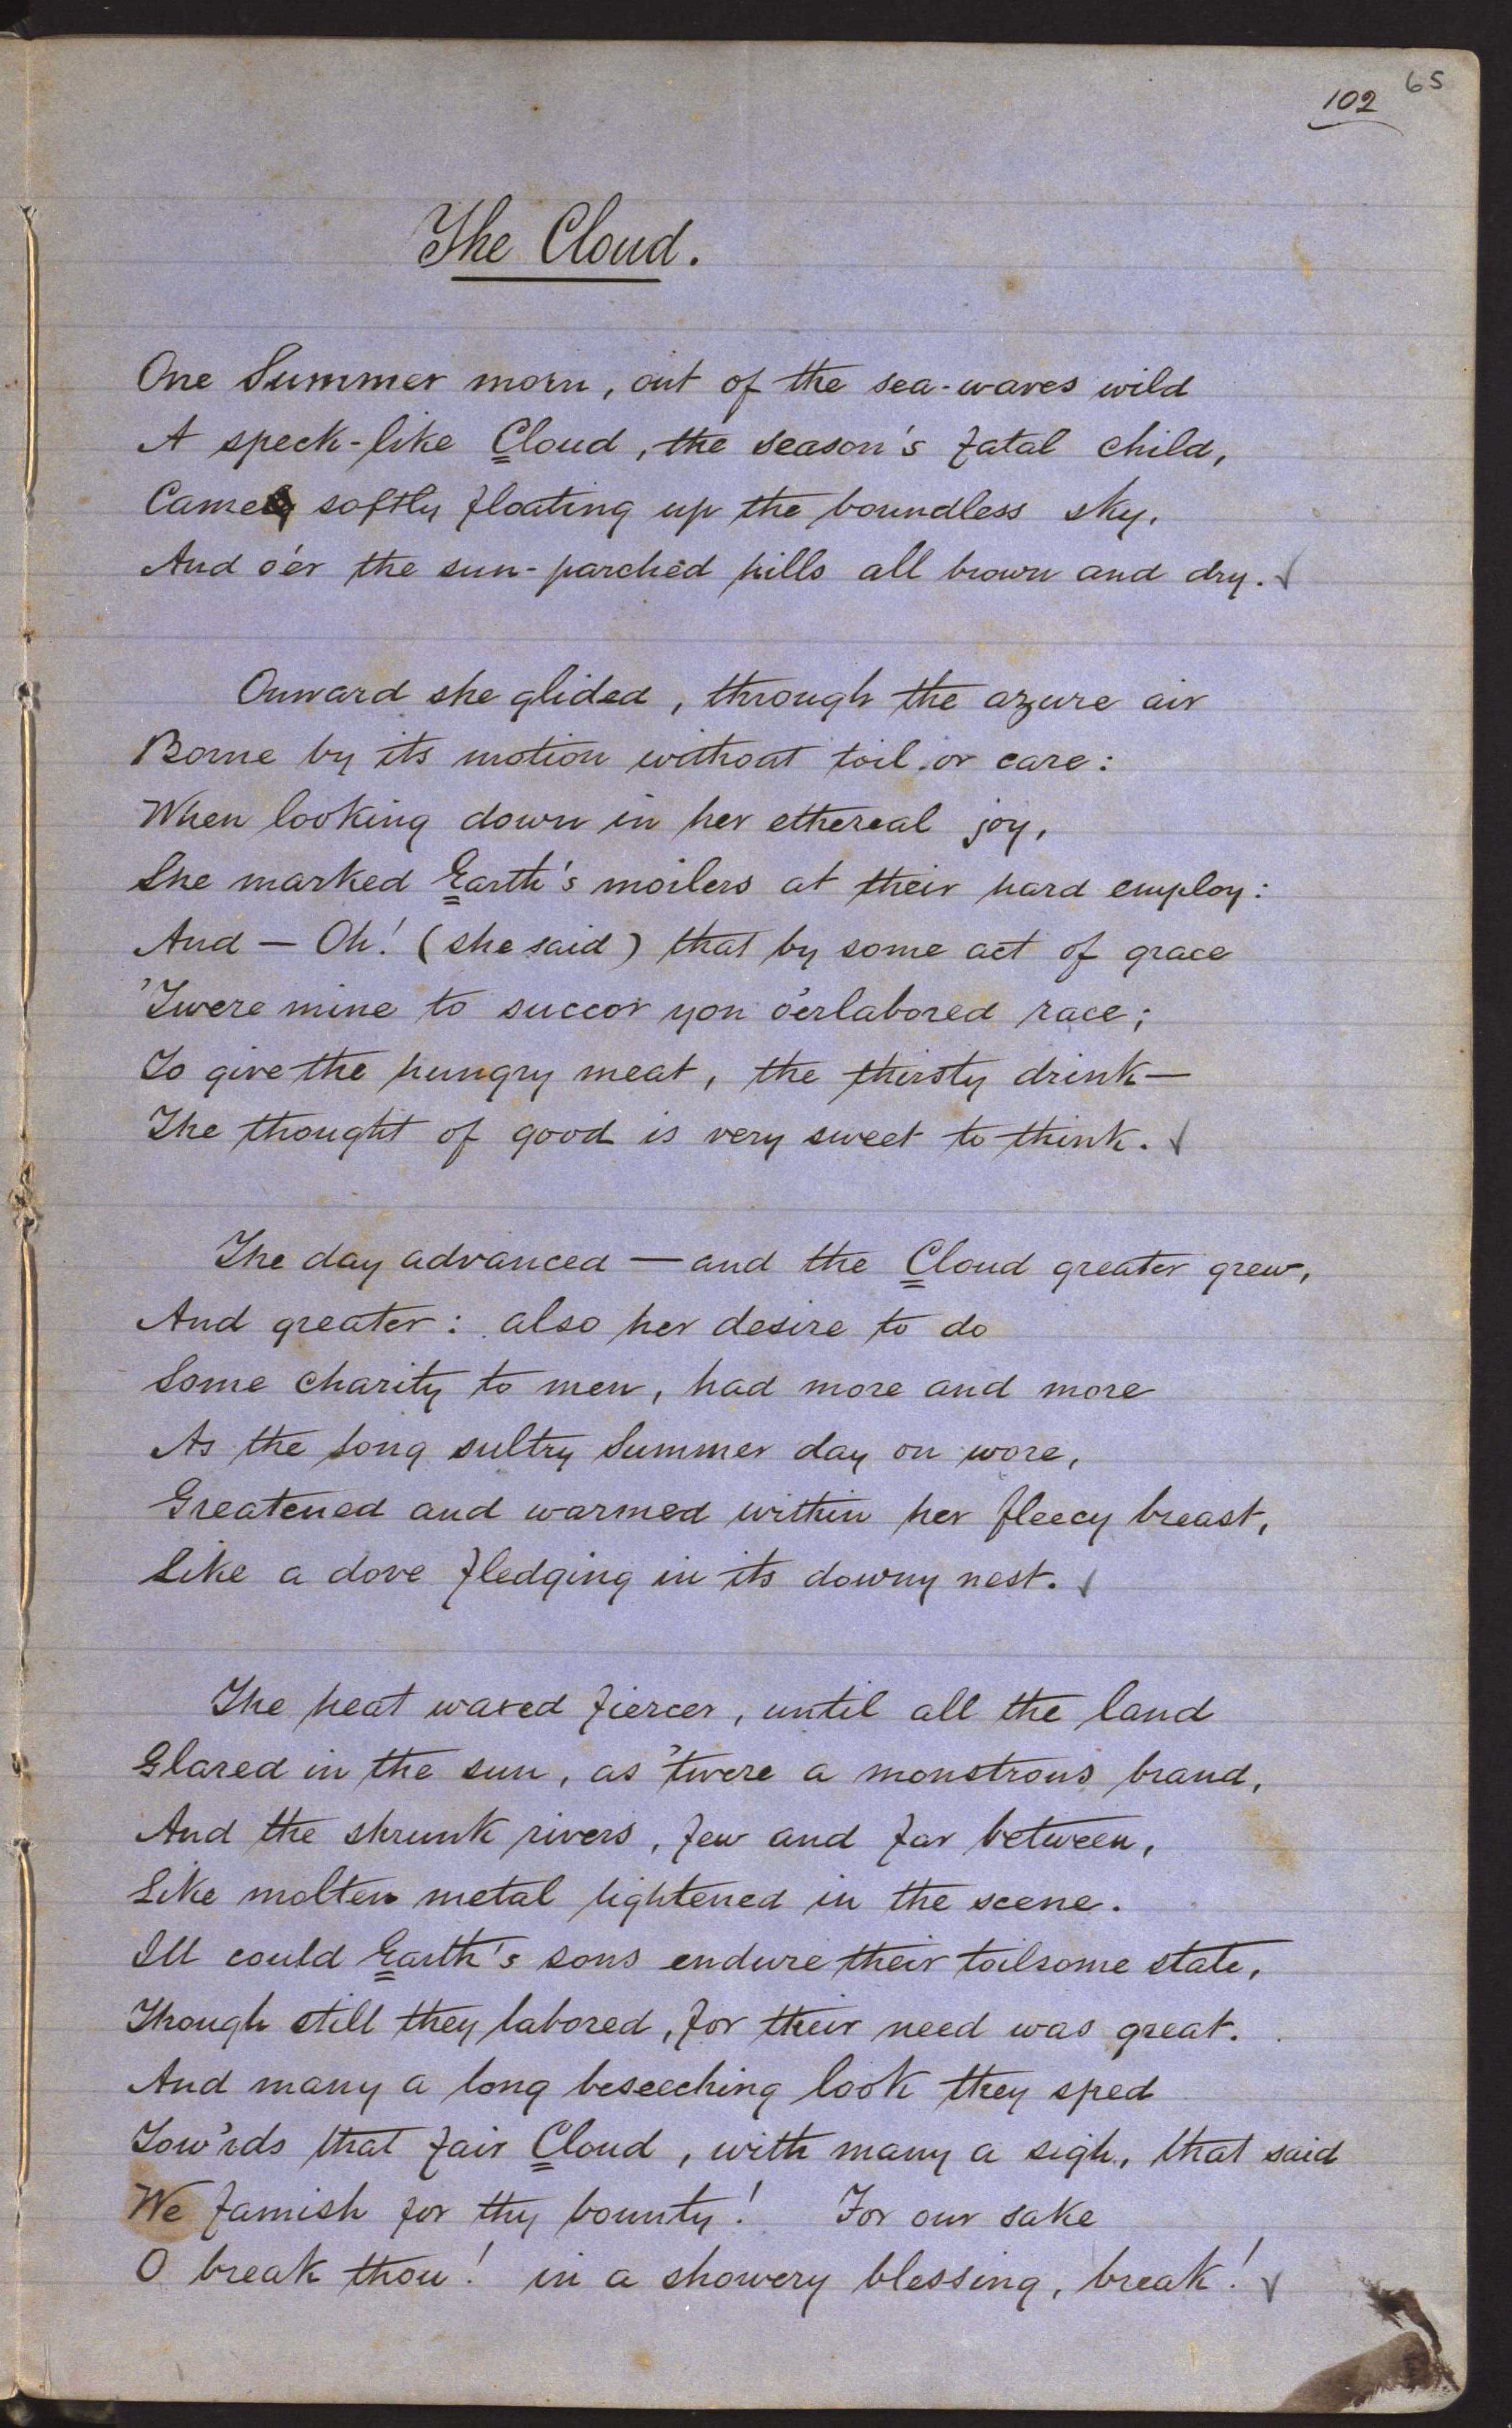 65
102
The Cloud.
One Summer morn, out of the sea-waves wild
A speck-like Cloud, the season's fatal child,
Came softly floating up the boundless sky,
And o'er the sun-parchèd hills all brown and dry.
Onward she glided, through the azure air
Borne by its motion without toil or care:
When looking down in her ethereal joy,
She marked Earth's moilers at their hard employ:
And — Oh! (she said) that by some act of grace
'Twere mine to succor yon o'erlabored race;
To give the hungry meat, the thirsty drink—
The thought of good is very sweet to think.
The day advanced — and the Cloud greater grew,
And greater: also her desire to do
Some charity to men, had more and more
As the long sultry Summer day on wore,
Greatened and warmed within her fleecy breast,
Like a dove fledging in its downy nest.
The heat waxed fiercer, until all the land
Glared in the sun, as 'twere a monstrous brand,
And the shrunk rivers, few and far between,
Like molten metal lightened in the scene.
Ill could Earth's sons endure their toilsome state,
Though still they labored, for their need was great.
And many a long beseeching look they sped
Tow'rds that fair Cloud, with many a sigh, that said
We famish for thy bounty! For our sake
O break thou! in a showery blessing, break!